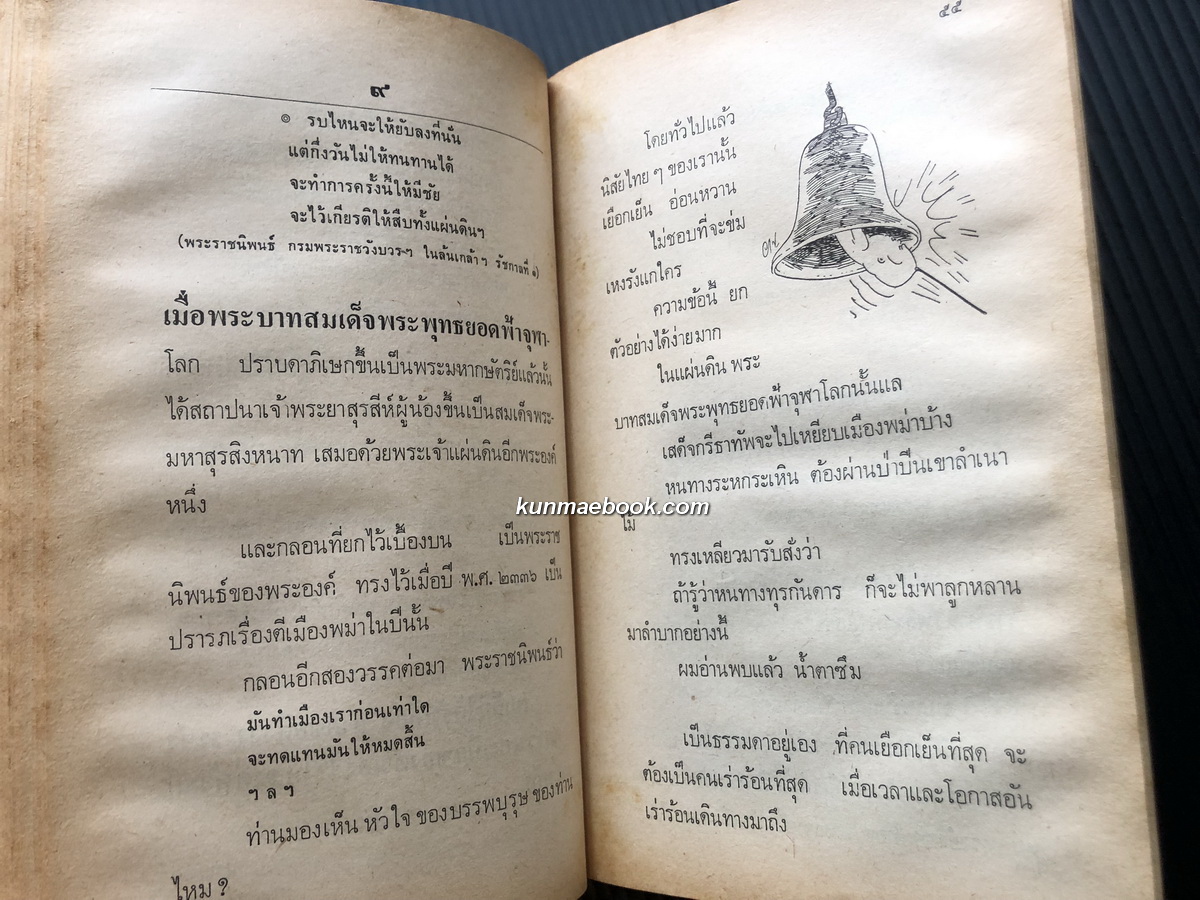 ๙
๏ รบไหนจะให้ยับลงที่นั่น
แต่กึ่งวันไม่ให้ทนทานได้
จะทำการครั้งนี้ให้มีชัย
จะไว้เกียรติให้สืบทั้งแผ่นดินฯ
(พระราชนิพนธ์ กรมพระราชวังบวรฯ ในล้นเกล้าฯ รัชกาลที่ ๑)
เมื่อพระบาทสมเด็จพระพุทธยอดฟ้าจุฬา-
โลก ปราบดาภิเษกขึ้นเป็นพระมหากษัตริย์แล้วนั้น
ได้สถาปนาเจ้าพระยาสุรสีห์ผู้น้องขึ้นเป็นสมเด็จพระ-
มหาสุรสิงหนาท เสมอด้วยพระเจ้าแผ่นดินอีกพระองค์
หนึ่ง
และกลอนที่ยกไว้เบื้องบน เป็นพระราช
นิพนธ์ของพระองค์ ทรงไว้เมื่อปี พ.ศ. ๒๓๓๖ เป็น
ปรารภเรื่องตีเมืองพม่าในปีนั้น
กลอนอีกสองวรรคต่อมา พระราชนิพนธ์ว่า
มันทำเมืองเราก่อนเท่าใด
จะทดแทนมันให้หมดสิ้น
ฯ ล ฯ
ท่านมองเห็น หัวใจ ของบรรพบุรุษ ของท่าน
ไหม ?
๕๕
โดยทั่วไปแล้ว
นิสัยไทย ๆ ของเรานั้น
เยือกเย็น อ่อนหวาน
ไม่ชอบที่จะข่ม
เหงรังแกใคร
ความข้อนี้ ยก
ตัวอย่างได้ง่ายมาก
ในแผ่นดิน พระ
บาทสมเด็จพระพุทธยอดฟ้าจุฬาโลกนั้นแล
เสด็จกรีธาทัพจะไปเหยียบเมืองพม่าบ้าง
หนทางระหกระเหิน ต้องผ่านป่าปีนเขาลำเนา
ไม้
ทรงเหลียวมารับสั่งว่า
ถ้ารู้ว่าหนทางทุรกันดาร ก็จะไม่พาลูกหลาน
มาลำบากอย่างนี้
ผมอ่านพบแล้ว น้ำตาซึม
เป็นธรรมดาอยู่เอง ที่คนเยือกเย็นที่สุด จะ
ต้องเป็นคนเร่าร้อนที่สุด เมื่อเวลาและโอกาสอัน
เร่าร้อนเดินทางมาถึง
kunmaebook.com